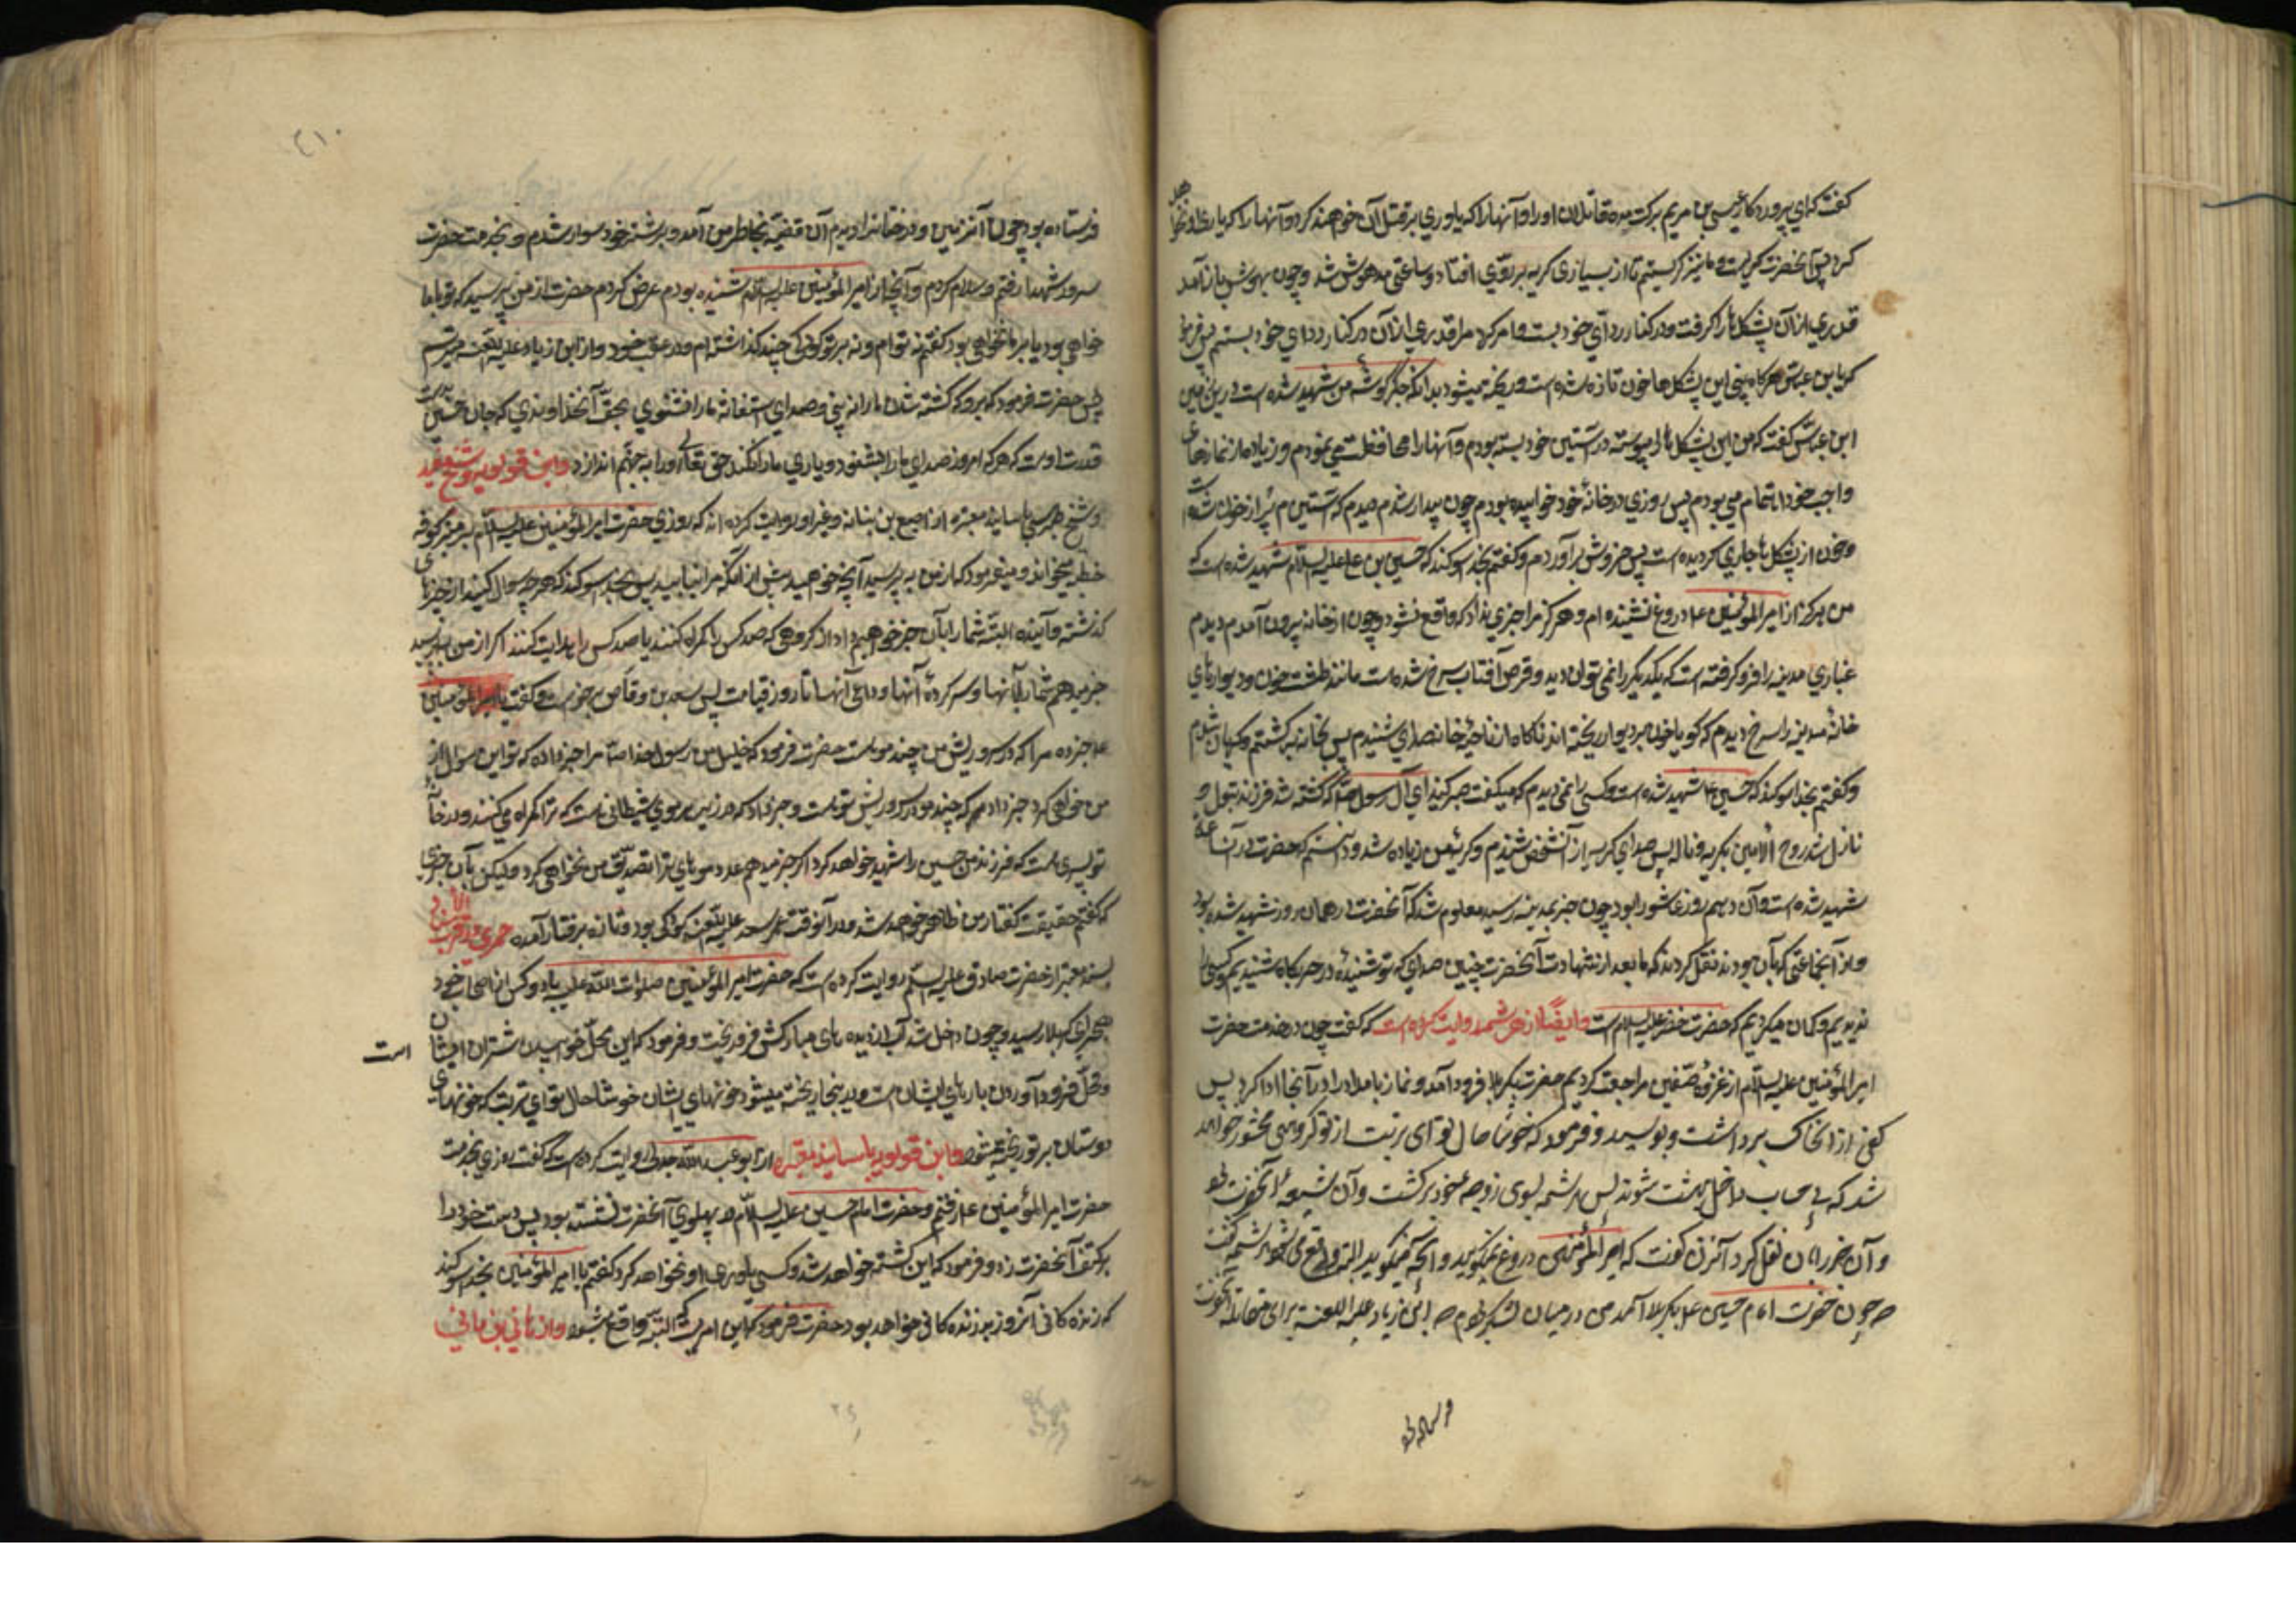 گفت که ای پروردگار عیسی بن مریم برکت مده قاتلان او را و آنها را که یاوری بر قتل آن خواهند کرد و آنها را که یاری او نخواهند
کرد پس آنحضرت گریست و ما نیز گریستیم تا از بسیاری گریه بر روی افتاد و ساعتی مدهوش شد و چون بهوش باز آمد
قدری از آن پشکل ها را گرفت و در کنار ردای خود بست و امر کرد مرا قدری از آن در کنار ردای خود بستم پس فرمود
که یابن عباس هر گاه بینی این پشکل ها خون تازه شده است و ریخته میشود بدانکه جگر گوشه من شهید شده است در این زمین
ابن عباس گفت که من این پشکل ها را پیوسته در آستین خود بسته بودم و آنها را محافظت می نمودم زیاده از نمازهای
واجب خود اهتمام می بودم پس روزی در خانه خود خوابیده بودم چون بیدار شدم دیدم که آستین م پر از خون شده است
و خون از پشکل ها جاری گردیده است پس خروش برآوردم و گفتم بخدا سوگند که حسین بن علی علیه السلام شهید شده است که
من هرگز از امیر المؤمنین ع دروغ نشنیده ام و هرگز مرا خبری نداد که واقع نشود و چون از خانه بیرون آمدم دیدم
غباری مدینه را فرو گرفته است که یکدیگر را نمی توان دید و قرص آفتاب سرخ شده است مانند طشت خون و دیوارهای
خانه مدینه را سرخ دیدم که گویا خون بر دیوار ریخته اند ناگاه از ناحیه خانه صدای شنیدم پس بخانه برگشتم و گریان شدم
و گفتم بخدا سوگند که حسین ع شهید شده است و کسی را نمی دیدم که میگفت صبر کنید ای آل رسول خدا که کشته شد فرزند بتول و
نازل شد روح الامین بگریه و ناله پس صدای گریه از آن شخص شنیدم و گریه من زیاده شد و دانستم که حضرت در آن ساعت
شهید شده است و آن دهم روز عاشورا بود چون خبر بمدینه رسید معلوم شد که آنحضرت در همان روز شهید شده بود
و از آنجماعتی که با آن بودند نقل کردند که ما بعد از شهادت آنحضرت چنین صدای که تو شنیدۀ در حربگاه شنیدیم و کسی را
ندیدیم و گمان میکردیم که حضرت خضر علیه السلام است و ایضًا از هرثمه روایت کرده است که گفت چون در خدمت حضرت
امیر المؤمنین علیه السلام از غزوه صفین مراجعت کردیم حضرت بکربلا فرود آمد و نماز بامداد را در آنجا ادا کرد پس
کفی از انخاک برداشت و بوسید و فرمود که خوشا حال تو ای تربت از تو گروهی محشور خواهند
شد که بی حساب داخل بهشت شوند پس هرثمه بسوی زوجه خود برگشت و آن شیعه آنحضرت بود
و آن خبر را بآن نقل کرد آنزن گفت که امیر المؤمنین دروغ نمیگوید و آنچه میگوید البته واقع می شود هرثمه گفت
که چون حضرت امام حسین ع بکربلا آمد من در میان لشکر بودم که ابن زیاد علیه اللعنه برای مقاتله آنحضرت
فرستاده بود
۴۱۰
فرستاده بود چون آنزمین و درختان را دیدم آن قضیه بخاطر من آمد و بر شتر خود سوار شدم و بخدمت حضرت
سرور شهدا رفتم و سلام کردم و آنچه از امیر المؤمنین علیه السلام شنیده بودم عرض کردم حضرت از من پرسید که تو با ما
خواهی بود یا بر ما خواهی بود گفتم نه با توام و نه بر تو کودکی چند گذاشته ام در عقب خود و از ابن زیاد علیه اللعنه میترسم
پس حضرت فرمود که برو که کشته شدن ما را نه بینی و صدای استغاثه ما را نشنوی بحق آنخداوندی که جان حسین بدست
قدرت اوست که هر که امروز صدای ما را بشنود و یاری ما را نکند حق تعالی او را به جهنم اندازد و ابن قولویه و شیخ مفید
و شیخ طبرسی باسانید معتبره از اصبغ بن نباته و غیر او روایت کرده اند که روزی حضرت امیر المؤمنین علیه السلام بر منبر کوفه
خطبه میخواند و میفرمود که از من به پرسید آنچه خواهید پیش از آنکه مرا نیابید پس بخدا سوگند که هر چه سوال کنید از خبرهای
گذشته و آینده البته شما را بآن خبر خواهم داد از گروهی که صد کس را گمراه کنند یا صد کس را هدایت کنند اگر از من بپرسید
خبر میدهم شما را بآنها و سرکردۀ آنها و داعی آنها تا روز قیامت پس سعد بن وقاص برخواست و گفت یا امیر المؤمنین
ع خبر ده مرا که در سر و ریش من چند مو است حضرت فرمود که خلیل من رسول خدا ص مرا خبر داده که تو این سوال از
من خواهی کرد خبر داد مرا که چند مو در سر و ریش تو است و خبر داد که در زیر هر موی شیطانی است که ترا گمراه می کند و در خانه
تو پسری است که فرزند من حسین را شهید خواهد کرد اگر خبر میدهم عدد موهای ترا تصدیق من نخواهی کرد ولیکن بآن خبری
که گفتم حقیقت گفتار من ظاهر خواهد شد و در آنوقت عمر سعد علیه اللعنه کودکی بود و تازه برفتار آمده حمیری در قرب الاسناد
بسند معتبر از حضرت صادق علیه السلام روایت کرده است که حضرت امیر المؤمنین صلوات الله علیه با دو کس از اصحاب خود
بصحرای کربلا رسید و چون داخل شد آب از دیده های مبارکش فرو ریخت و فرمود که این محل خوابیدن شتران ایشان است
و محل فرود آوردن بارهای ایشان است و در اینجا ریخته میشود خونهای ایشان خوشا حال تو ای تربت که خونهای
دوستان بر تو ریخته میشود و ابن قولویه باسانید معتبره از ابو عبد الله جدلی روایت کرده است که گفت روزی بخدمت
حضرت امیر المؤمنین ع رفتم و حضرت امام حسین علیه السلام در پهلوی آنحضرت نشسته بود پس دست خود را
بر کتف آنحضرت زد و فرمود که این کشته خواهد شد و کسی یاوری او نخواهد کرد گفتم یا امیر المؤمنین بخدا سوگند
که زنده گانی آنروز بد زنده گانی خواهد بود حضرت فرمود که این امریست که البته واقع میشود و از هانی بن هانی